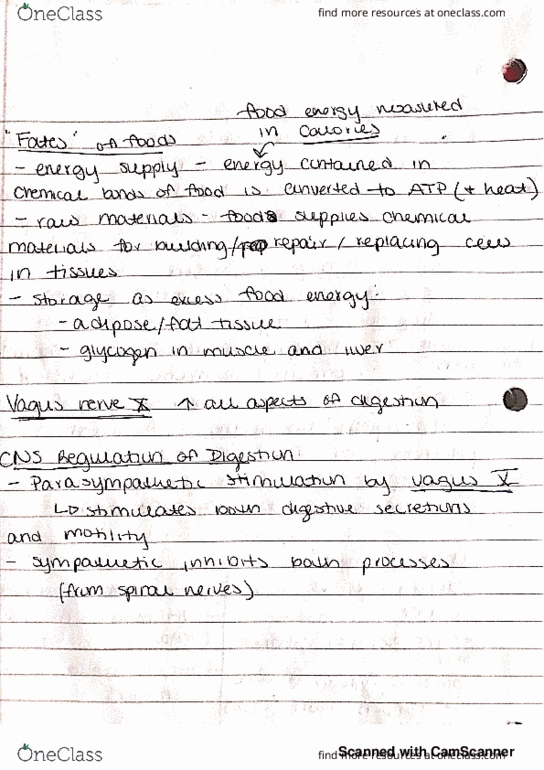 OneClass
find more resources at oneclass.com
food energy measured
"Fates" of foods in Calories
- energy supply - energy contained in
chemical bonds of food is converted to ATP (+ heat)
- raw materials - foods supplies chemical
materials for building/ repair / replacing cells
in tissues
- storage as excess food energy:
- adipose/fat tissue
- glycogen in muscle and liver
Vagus nerve X ↑ all aspects of digestion
CNS Regulation of Digestion
- Parasympathetic stimulation by vagus X
↳ stimulates both digestive secretions
and motility
- sympathetic inhibits both processes
(from spinal nerves)
OneClass
find more resources at oneclass.com
Scanned with CamScanner